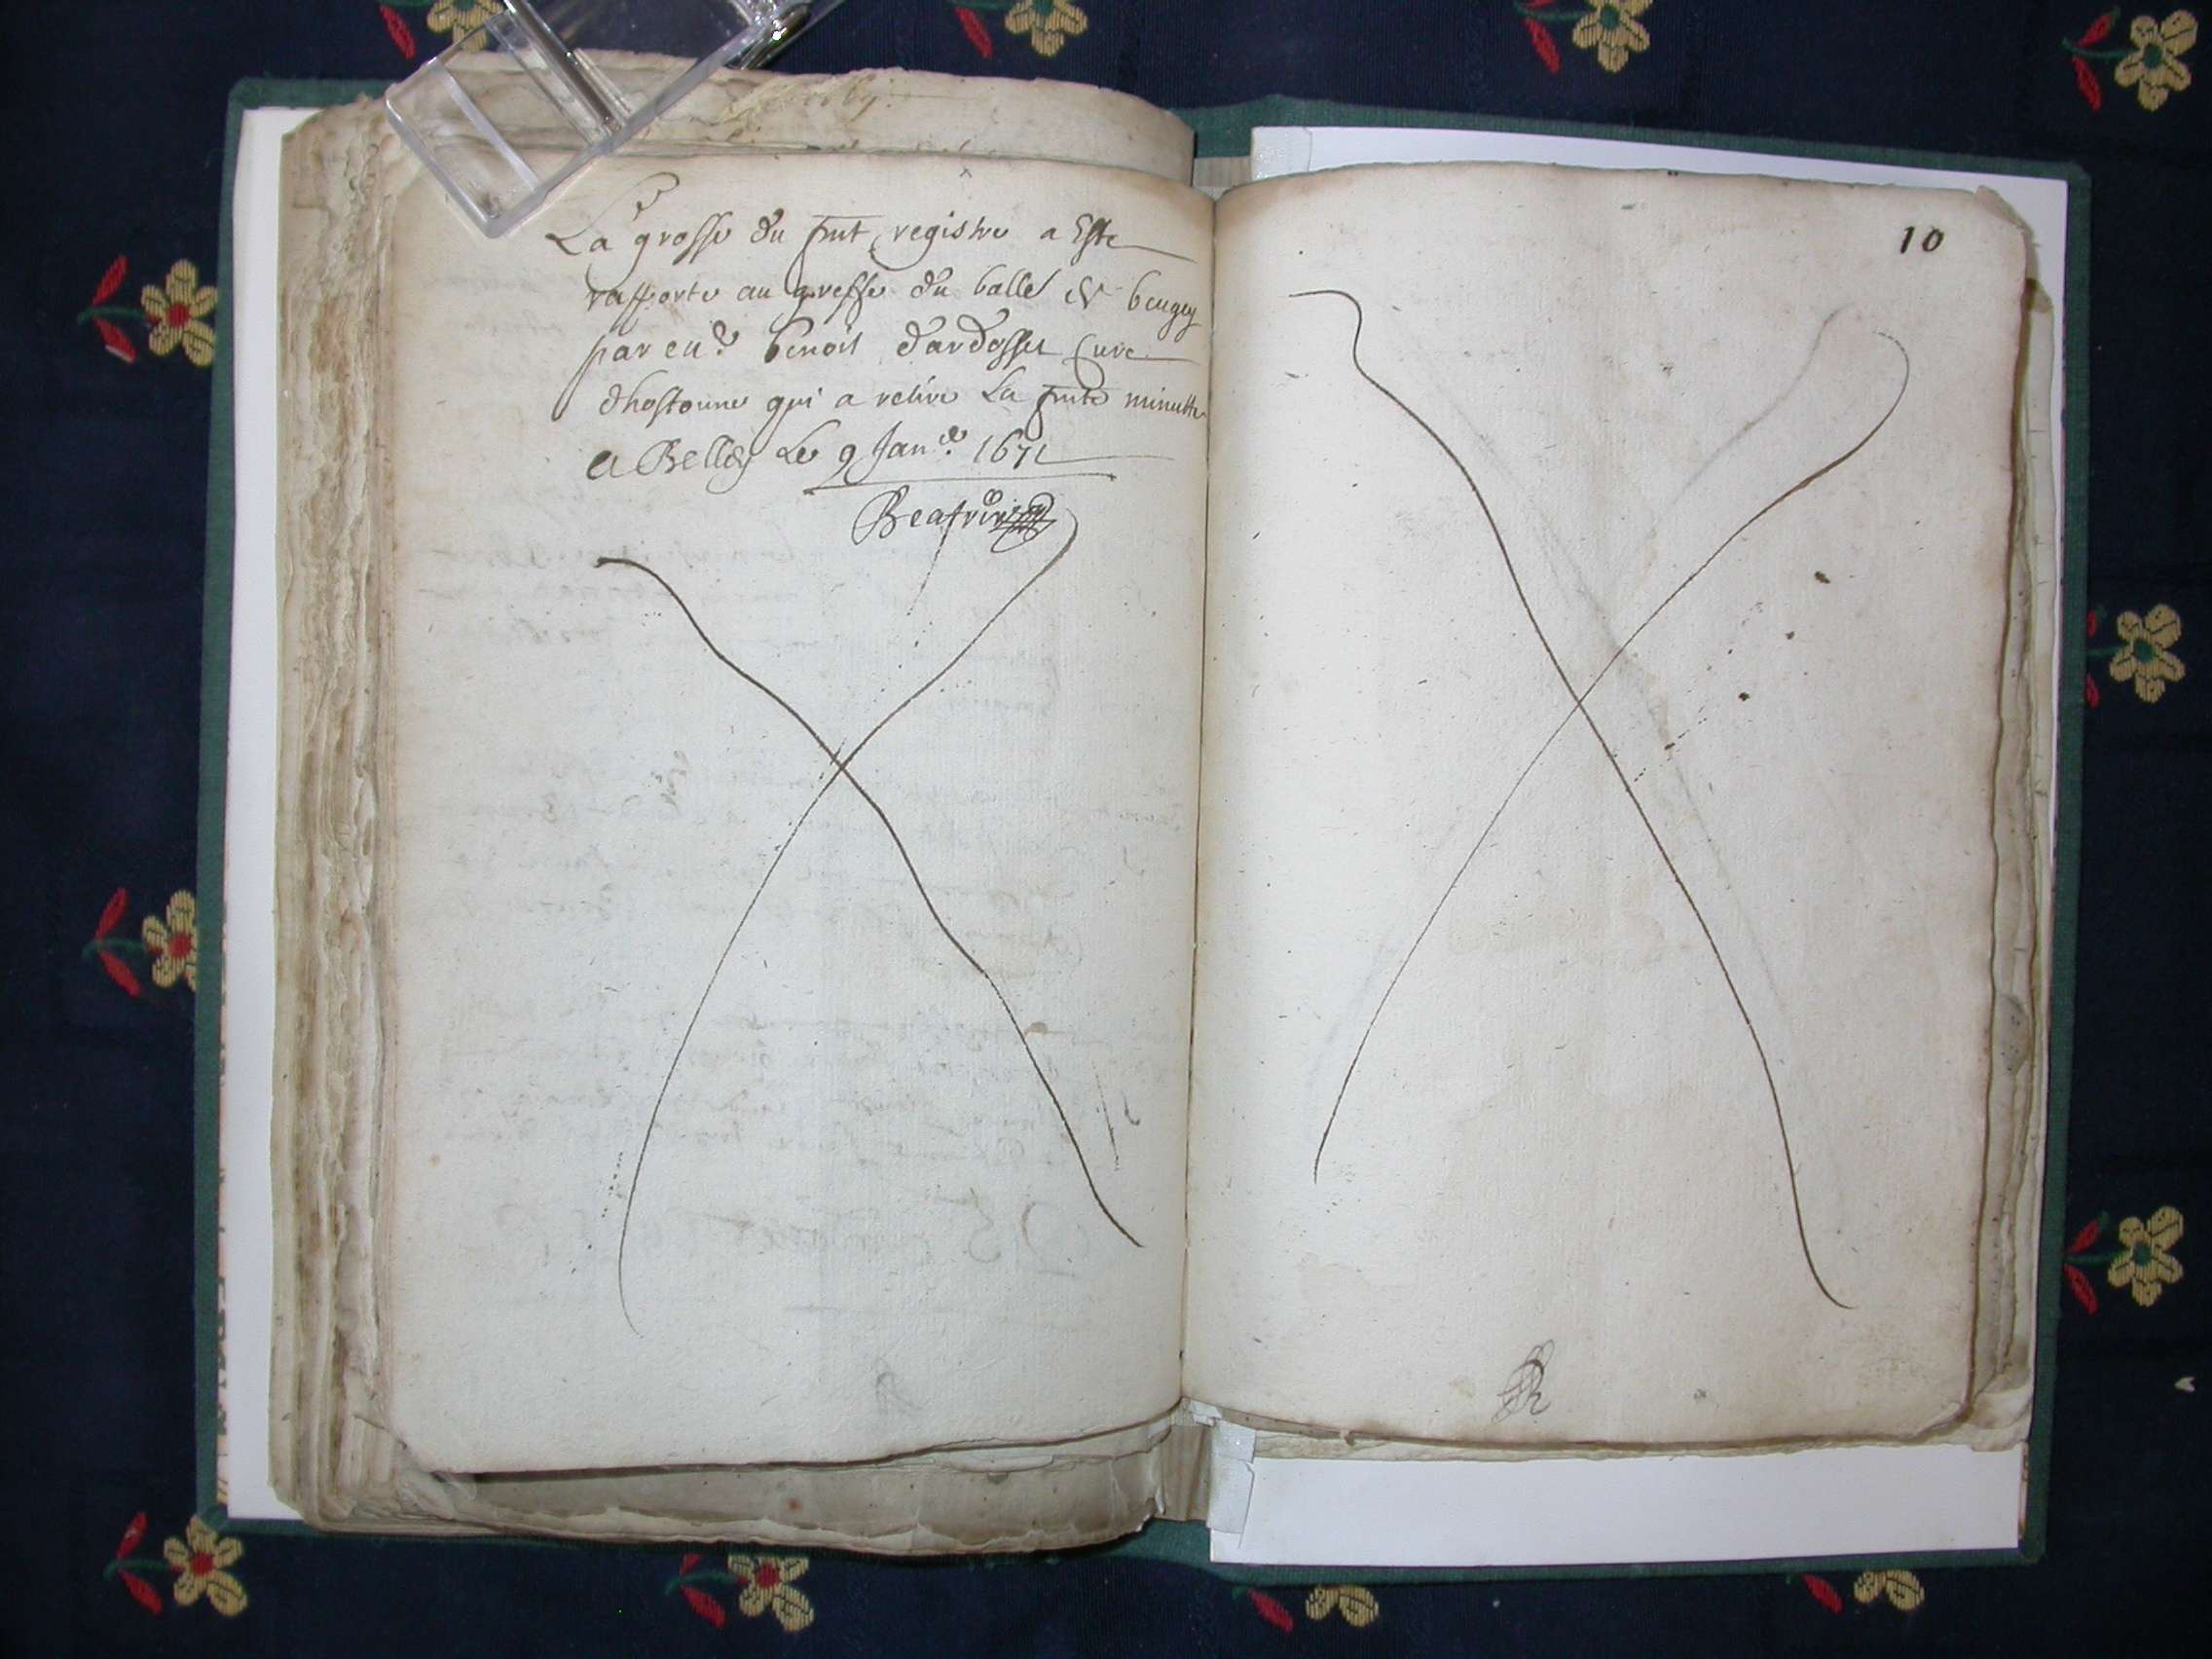 La grosse du pnt registre a Este
rapporte au greffe du balle de beugey
par eu.e benoit dardosset Cure
dhostonne qui a retire La pnte minutte
A Belley Le 9 Janer. 1671
10